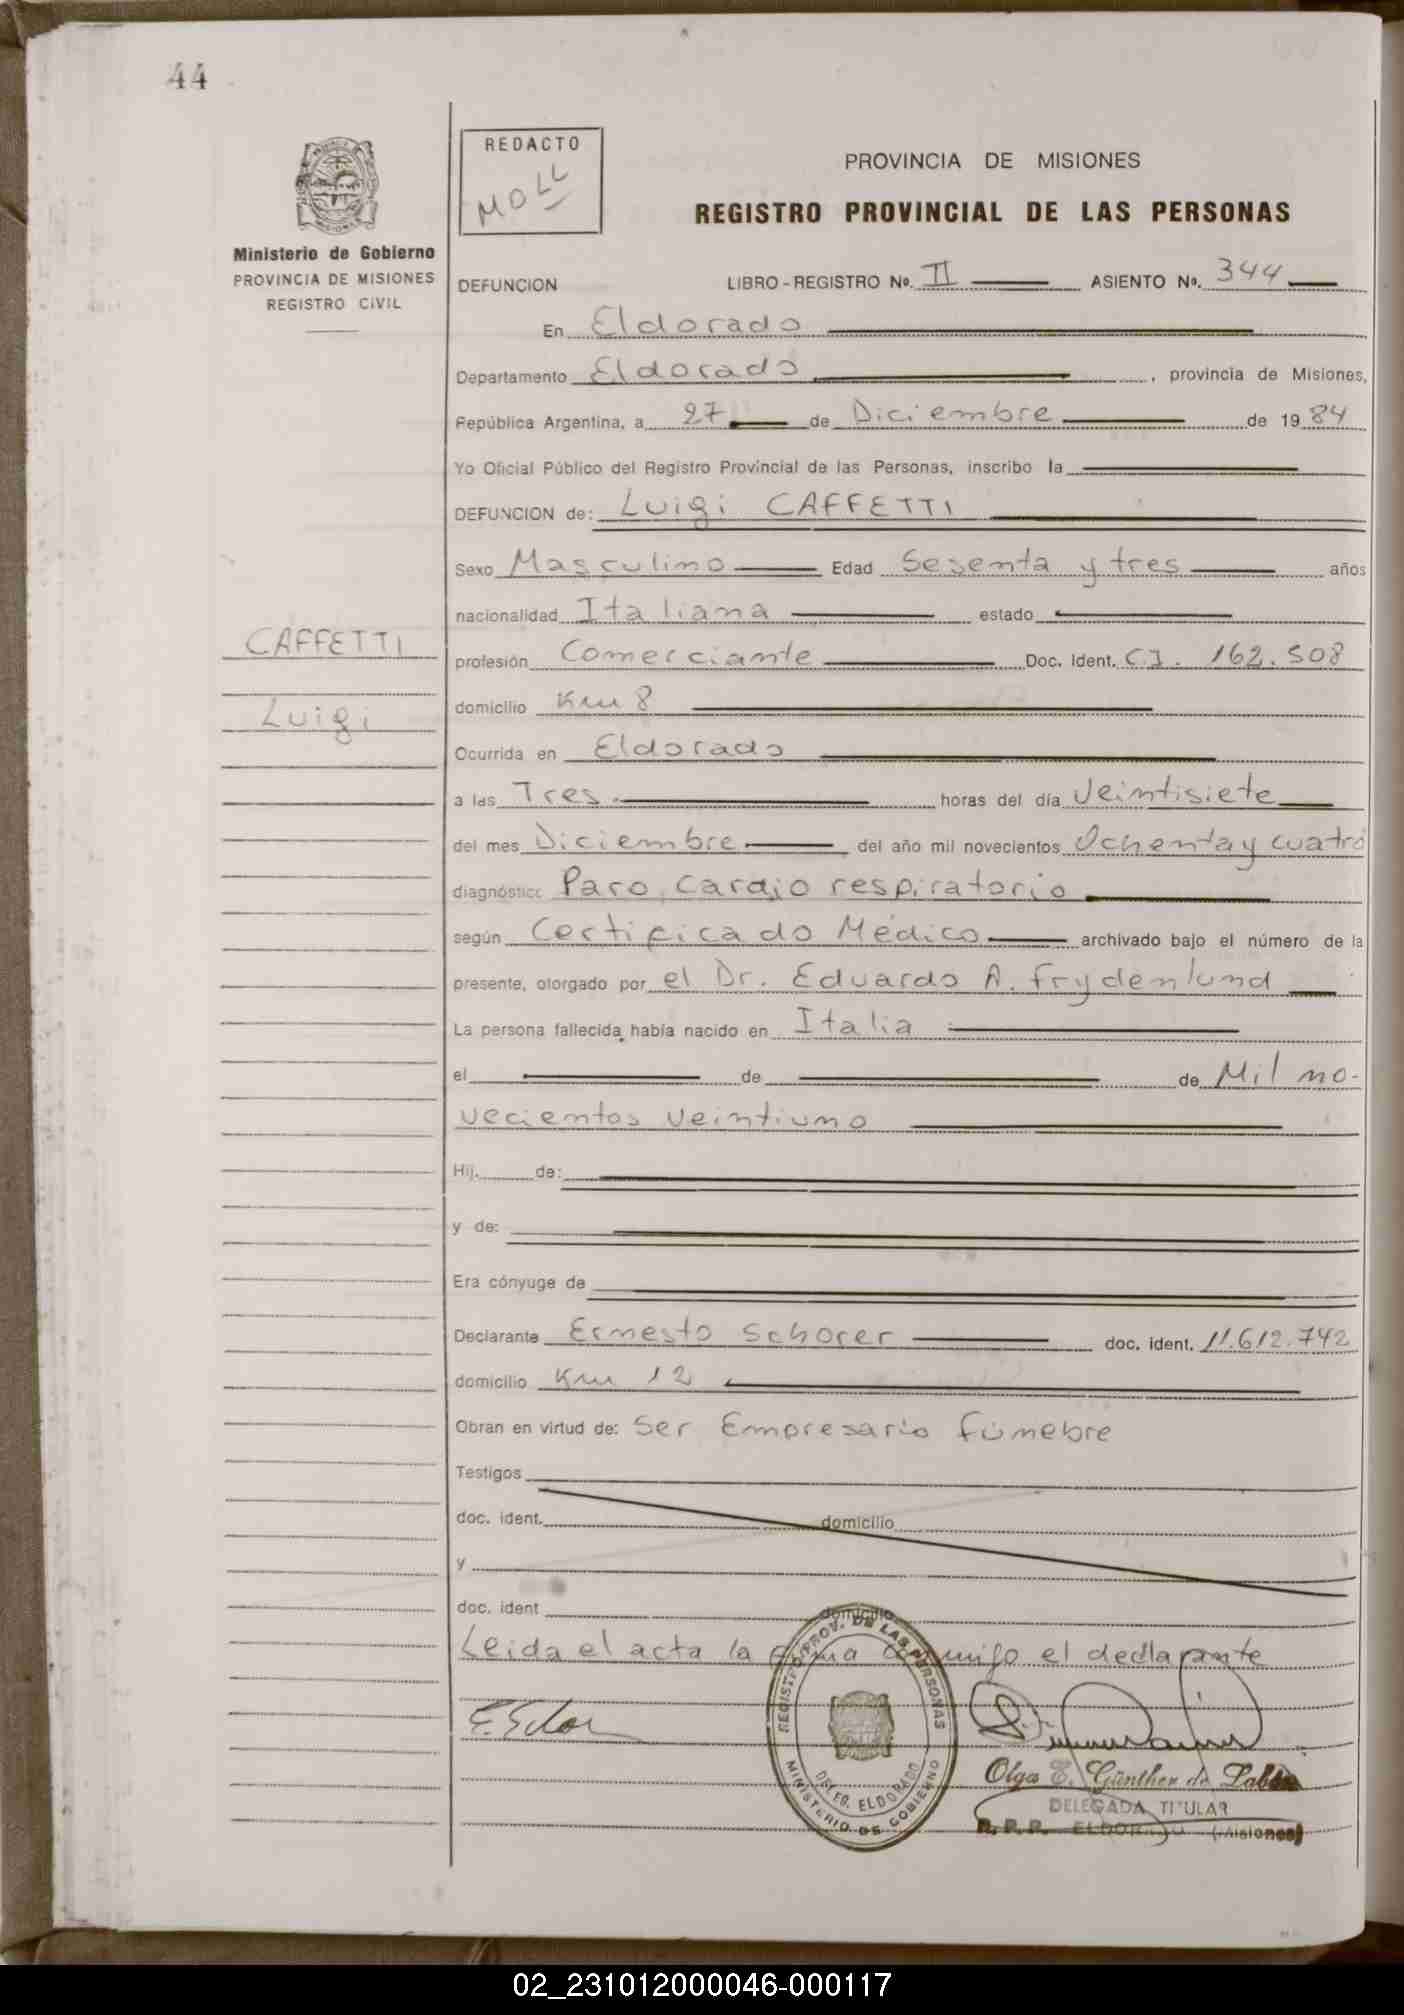 44
REDACTO
MOLL
Ministerio de Gobierno
PROVINCIA DE MISIONES
REGISTRO CIVIL
PROVINCIA DE MISIONES
REGISTRO PROVINCIAL DE LAS PERSONAS
DEFUNCION LIBRO - REGISTRO No. II ASIENTO No. 344
En Eldorado
Departamento Eldorado, provincia de Misiones,
República Argentina, a 27 de Diciembre de 1984
Yo Oficial Público del Registro Provincial de las Personas, inscribo la
DEFUNCION de: Luigi CAFFETTI
Sexo Masculino Edad Sesenta y tres años
nacionalidad Italiana estado
CAFFETTI
Luigi
profesión Comerciante Doc. Ident. C.I. 162.508
domicilio Km 8
Ocurrida en Eldorado
a las Tres horas del día Veintisiete
del mes Diciembre del año mil novecientos Ochenta y cuatro
diagnóstico Paro cardio respiratorio
según Certificado Médico archivado bajo el número de la
presente, otorgado por el Dr. Eduardo A. Frydenlund
La persona fallecida había nacido en Italia
el de de Mil no-
vecientos veintiuno
Hij. de:
y de:
Era cónyuge de
Declarante Ernesto Schorer doc. ident. 11.612.742
domicilio Km 12
Obran en virtud de: Ser Empresario fúnebre
Testigos
doc. ident. domicilio
y
doc. ident domicilio
Leida el acta la firma conmigo el declarante
REGISTRO PROV. DE LAS PERSONAS
DELEG. ELDORADO
MINISTERIO DE GOBIERNO
Olga E. Günther de
DELEGADA TITULAR
R. P. P. ELDORADO (Misiones)
02_231012000046-000117